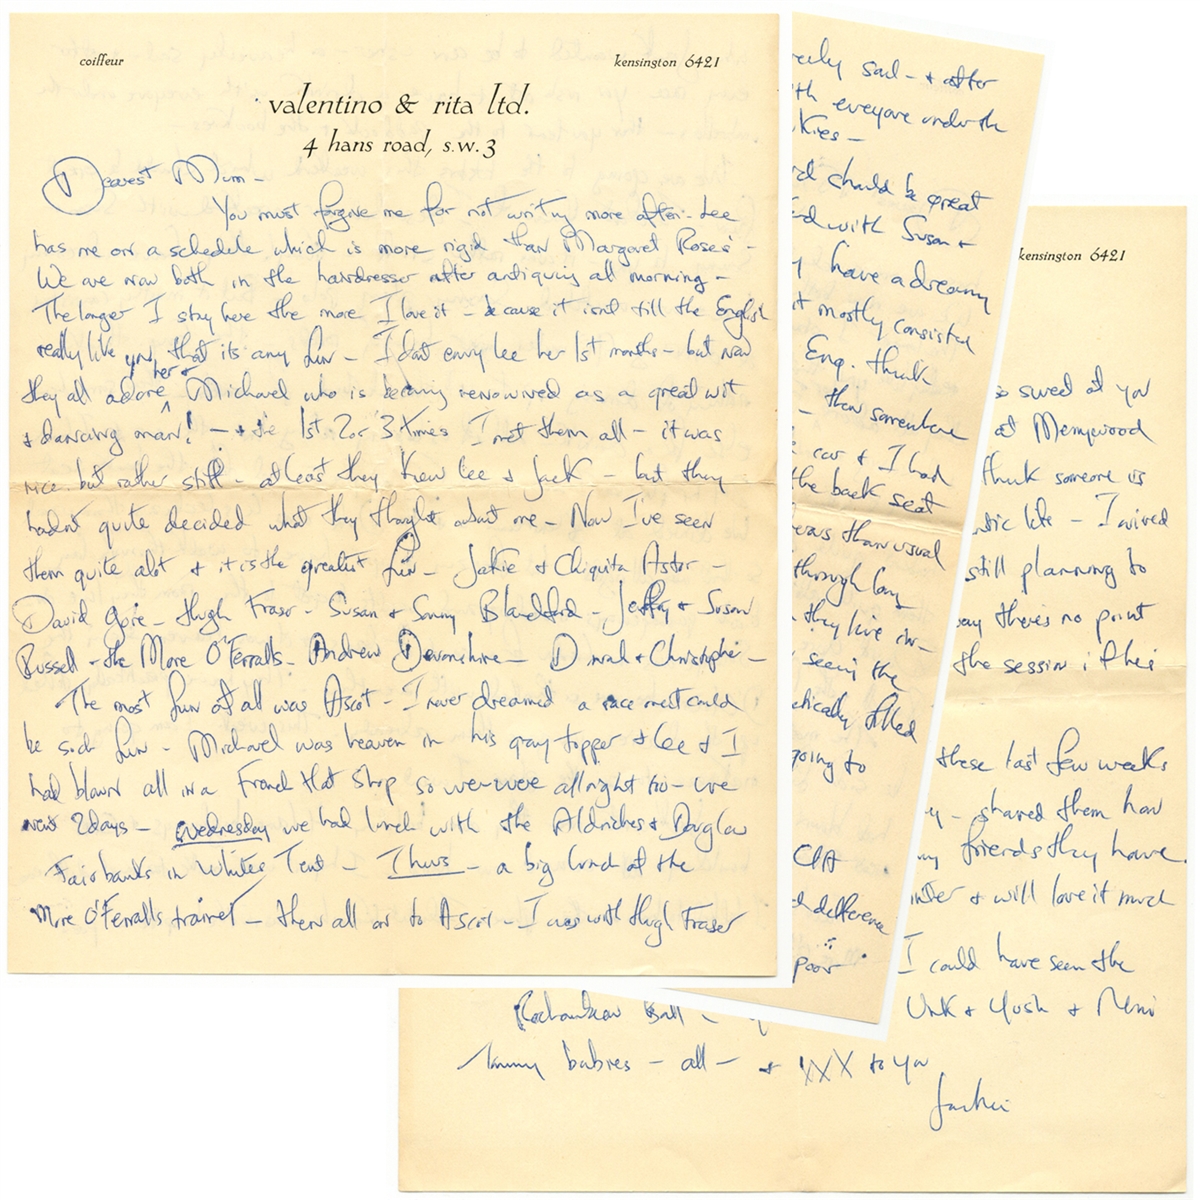 coiffeur kensington 6421
valentino & rita ltd.
4 hans road, s.w.3
Dearest Mum -
You must forgive me for not writing more often - Lee
has me on a schedule which is more rigid than Margaret Roses' -
We are now both in the hairdresser after antiquing all morning -
The longer I stay here the more I love it - because it isnt till the English
really like you, that its any fun - I dont envy Lee her 1st months - but now
they all adore her & Michael who is becoming renowned as a great wit
& dancing man! - & the 1st 2 or 3 times I met them all - it was
nice but rather stiff - at least they knew Lee & Jack - but they
hadnt quite decided what they thought about me - Now I've seen
them quite alot & it is the greatest fun - Jakie & Chiquita Astor -
David Gore - Hugh Fraser - Susan & Sonny Blandford - Jeffry & Susan
Russell - the More O'Ferralls - Andrew Devonshire - & Christophe -
The most fun of all was Ascot - I never dreamed a race meet could
be such fun - Michael was heaven in his gray topper & Lee & I
had blown all in a French Hat Shop so we were allright too - we
went 2 days - Wednesday we had lunch with the Aldriches & Douglas
Fairbanks in Whites Tent - Thurs - a big lunch at the
More O'Ferralls trainer - then all on to Ascot - I was with Hugh Fraser
sad - & after
everyone under the
-
should be great
with Susan &
have a dreamy
it mostly consisted
Eng. think
- than somewhere
car & I had
the back seat
than usual
through long
they live in -
seems the
filled
going to
CIA
difference
poor
kensington 6421
so sweet of you
at Merrywood
think someone is
life - I wired
still planning to
say theres no point
the session if his
these last few weeks
- shared them how
friends they have.
& will love it much
I could have seen the
Unk & Yush & Nini
Ball -
babies - all - & XXX to you
Jackie